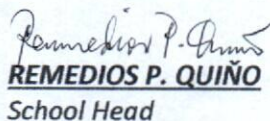 Remedios P. Quiño
REMEDIOS P. QUIÑO
School Head